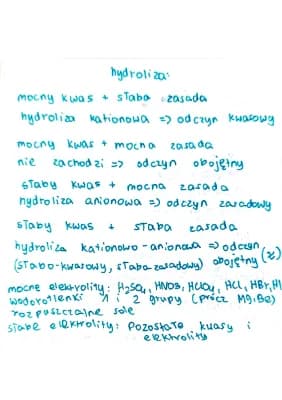 hydroliza:
mocny kwas + słaba zasada
hydroliza kationowa => odczyn kwasowy
mocny kwas + mocna zasada
nie zachodzi => odczyn obojętny
słaby kwas + mocna zasada
hydroliza anionowa => odczyn zasadowy
słaby kwas + słaba zasada
hydroliza kationowo-anionowa => odczyn
(słabo-kwasowy, słabo zasadowy) obojętny (≈)
mocne elektrolity: H₂SO₄, HNO₃, HClO₄, HCl, HBr, HI
wodorotlenki 1 i 2 grupy (prócz Mg, Be)
rozpuszczalne sole
słabe elektrolity: Pozostałe kwasy i
elektrolity